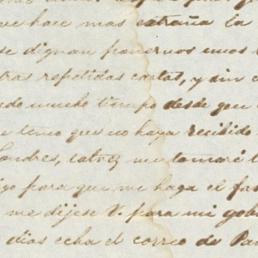 ue hace mas estraña la
se dignan ponernos unos
tras repetidas cartas, y sin
ndo mucho tiempo desde que
e temo que no haya recibido
Londres, talvez me tomaré l
igo para que me haga el fa
me dijese V. para mi gob
dias echa el correo de Pa